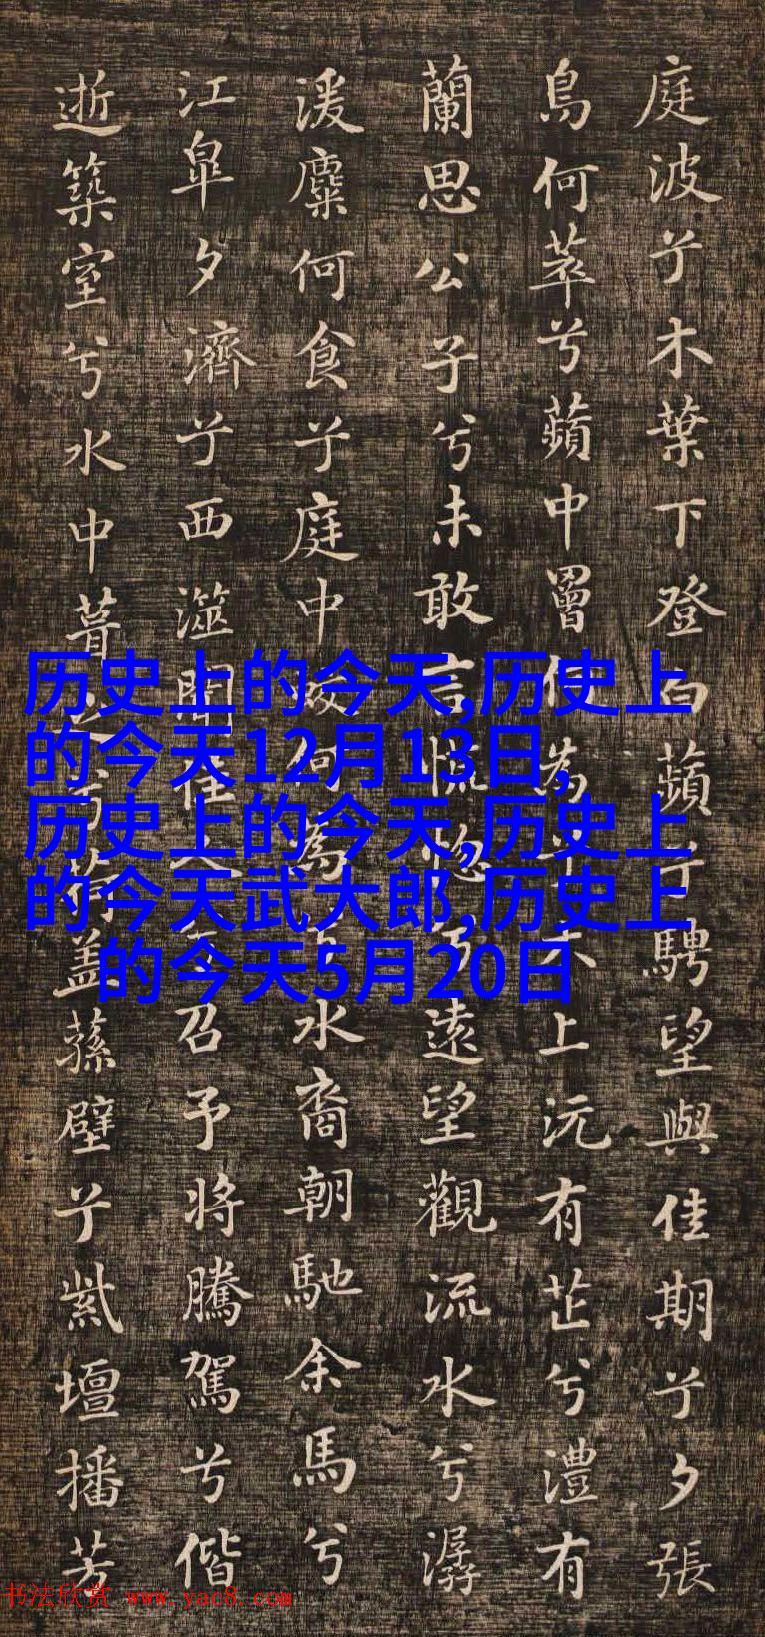 庭波兮木葉下登白蘋兮騁望與佳期兮夕張
鳥何萃兮蘋中罾何為兮木上沅有芷兮澧有
蘭思公子兮未敢言慌惚兮遠望觀流水兮潺
湲麋何食兮庭中蛟何為兮水裔朝馳余馬兮
江皐夕濟兮西澨聞佳人兮召予將騰駕兮偕
逝築室兮水中葺之兮荷蓋蓀壁兮紫壇播芳
历史上的今天,历史上
的今天12月13日,
历史上的今天,历史上
的今天武大郎,历史上
的今天5月20日
书法欣赏 www.yac8.com